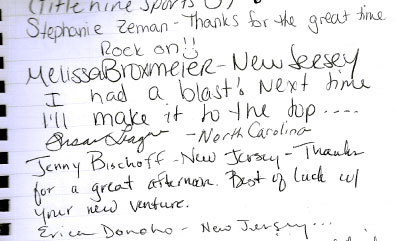 (Title nine Sports
Stephanie Zeman - Thanks for the great time
Rock on!!
Melissa Broxmeier - New Jersey
I had a blast! Next time
I'll make it to the top....
Susan - North Carolina
Jenny Bischoff - New Jersey - Thanks
for a great afternoon. Best of luck w/
your new venture.
Erica Donoho - New Jersey...